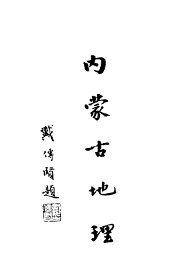 内蒙古地理
戴傳賢題